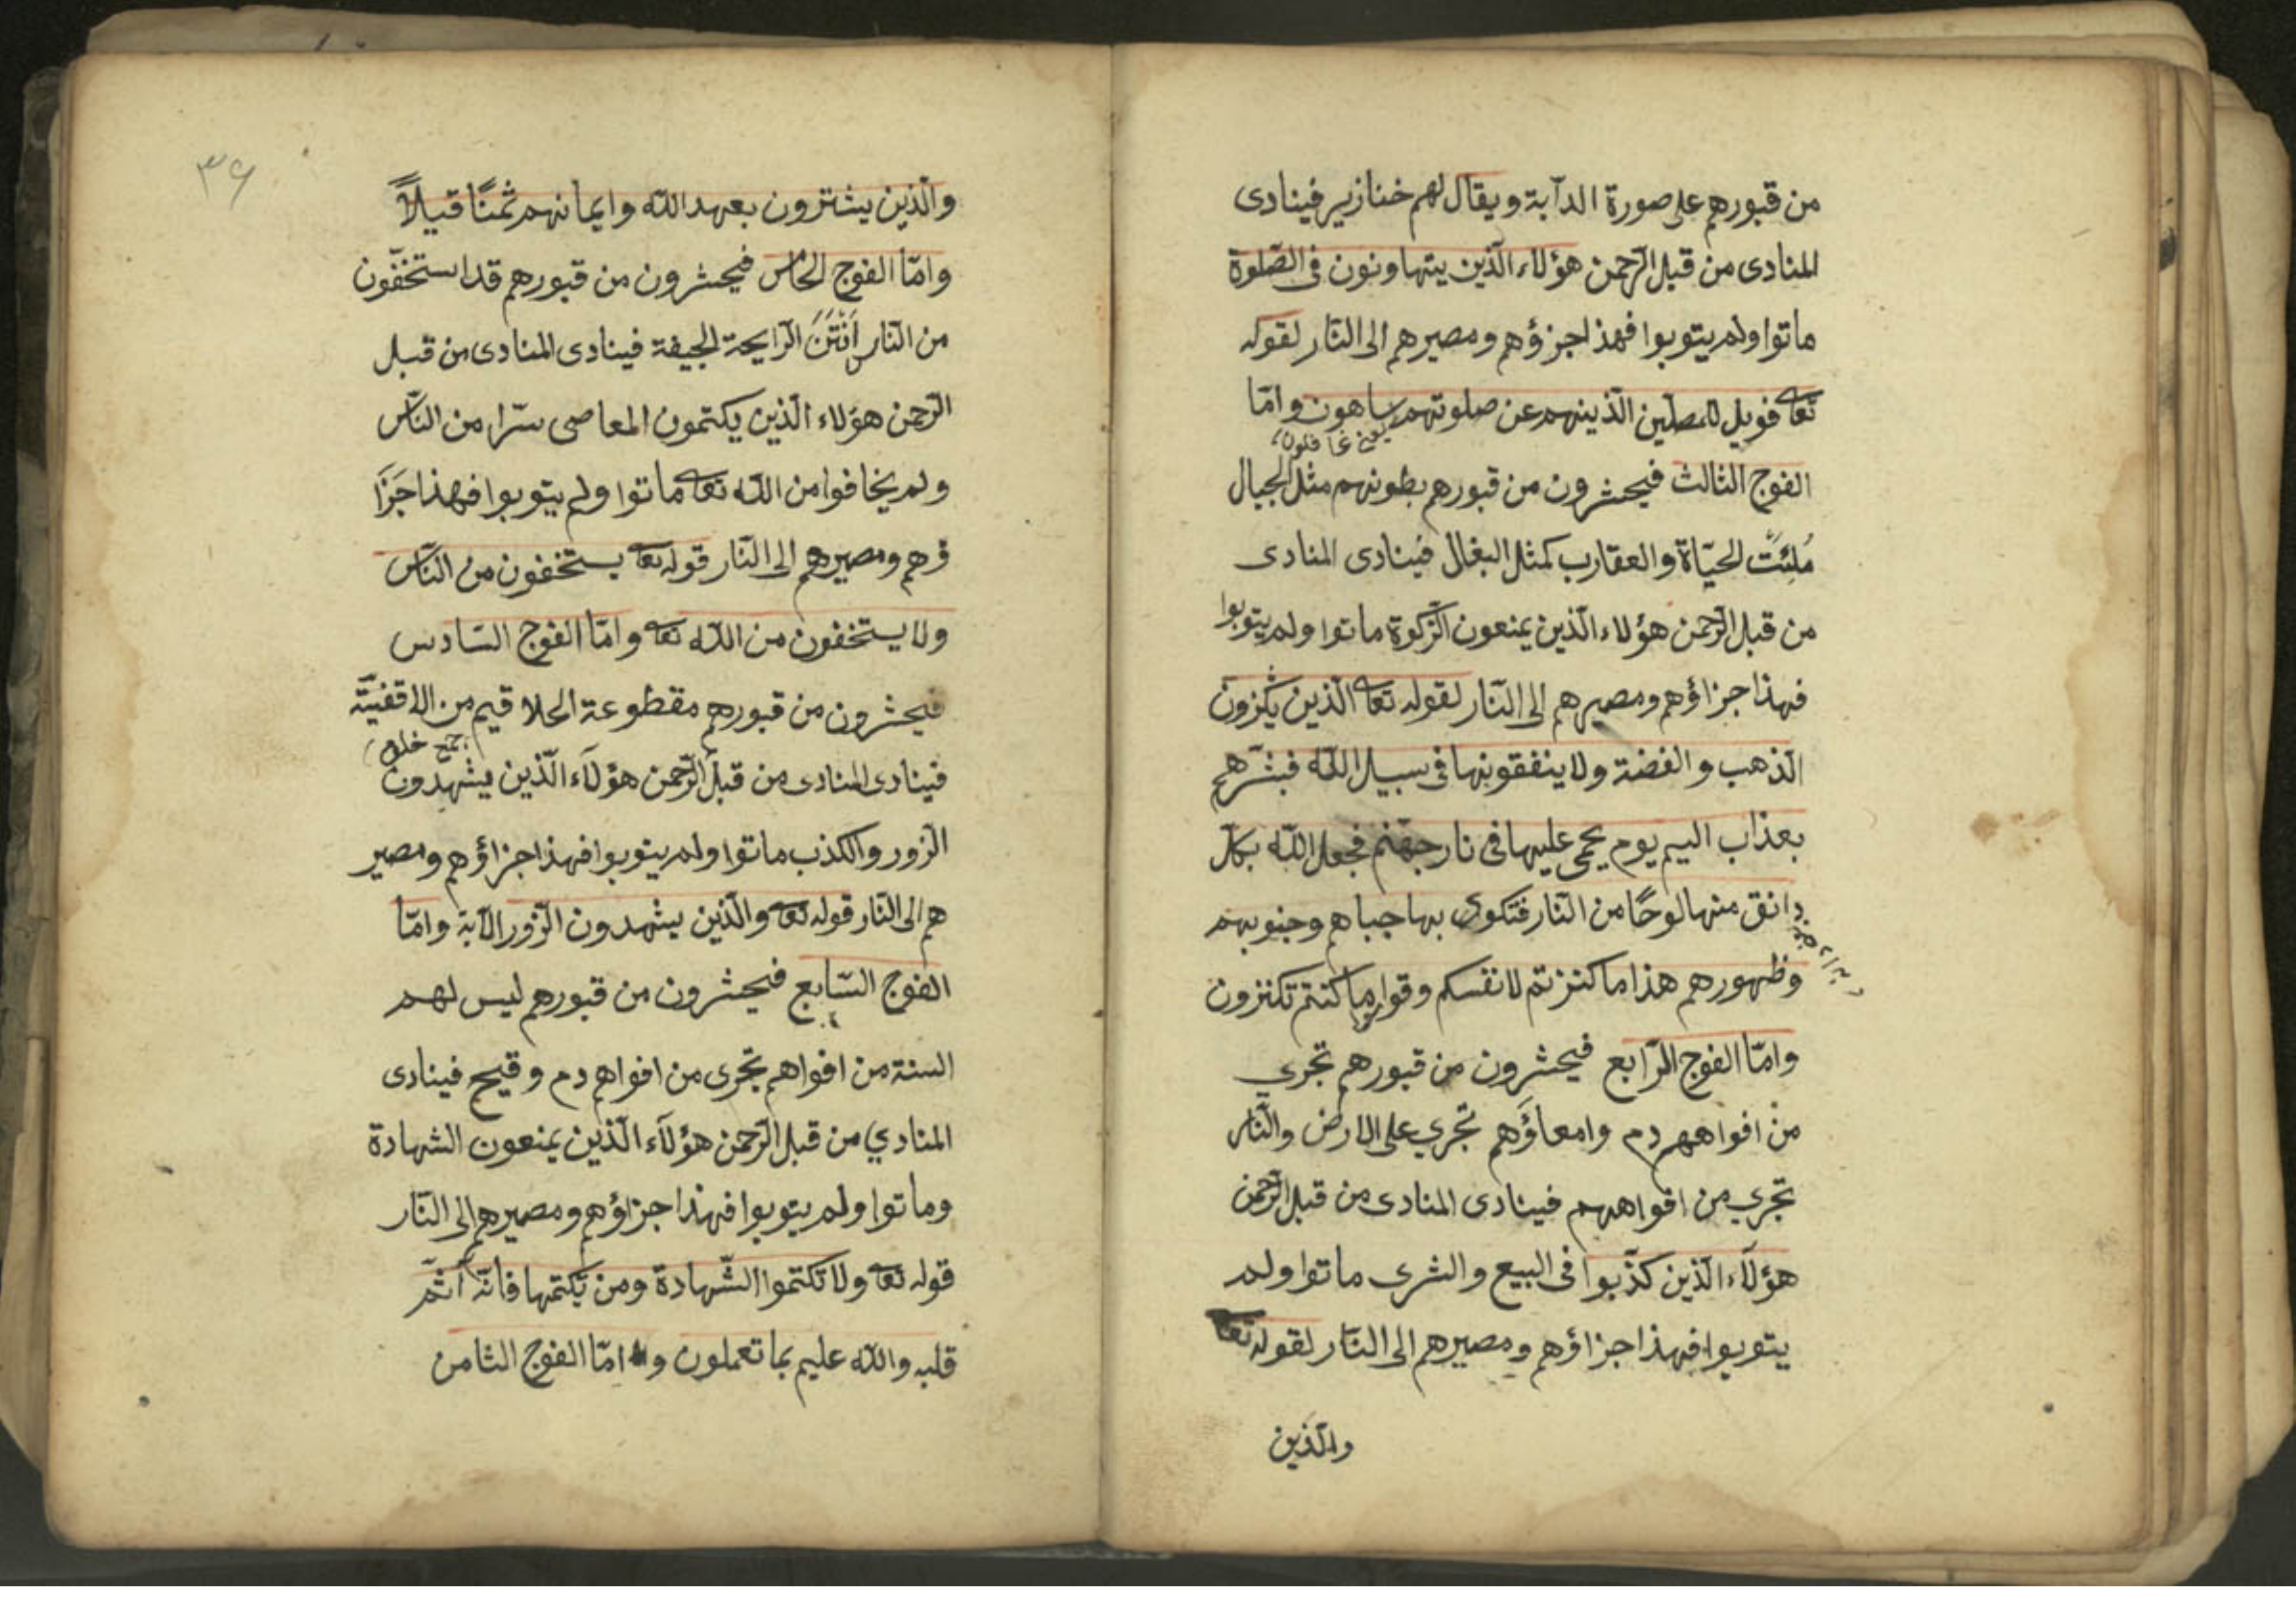 من قبورهم على صورة الدآبة ويقال لهم خنازير فينادى
المنادى من قبل الرّحمن هؤلاء الّذين يتهاونون فى الصّلوة
ماتوا ولم يتوبوا فهذا جزؤهم ومصيرهم الى النّار لقوله
تعا فويل للمصلّين الّذينهم عن صلوتهم ساهون وامّا
يعنى غافلون
الفوج الثالث فيحشرون من قبورهم بطونهم مثل الجبال
مُلِئَت الحيّاة والعقارب كمثل البغال فينادى المنادى
من قبل الرّحمن هؤلاء الّذين يمنعون الزّكوة ماتوا ولم يتوبوا
فهذا جزاؤهم ومصيرهم الى النّار لقوله تعا الّذين يكنزون
الذهب والفضة ولا ينفقونها فى سبيل اللّه فبشّرهم
بعذاب اليم يوم يحمى عليها فى نار جهنّم فجعل اللّه بكلّ
دانق منها لوحًا من النّار فتكوى بها جباهم وجنوبهم
وظهورهم هذا ما كنزتم لانفسكم وقوا ما كنتم تكنزون
وامّا الفوج الرّابع فيحشرون من قبورهم تجرى
من افواههم دم وامعاؤهم تجرى على الارض والنّار
تجرى من افواههم فينادى المنادى من قبل الرّحمن
هؤلآء الّذين كذّبوا فى البيع والشرى ماتوا ولم
يتوبوا فهذا جزاؤهم ومصيرهم الى النّار لقوله تعا
والّذين
٣٦
والّذين يشترون بعهد اللّه وايمانهم ثمنًا قليلاً
وامّا الفوج الخامس فيحشرون من قبورهم قد استخفّون
من النّاس اَنْتَنَ الرّايحة الجيفة فينادى المنادى من قبل
الرّحمن هؤلاء الّذين يكتمون المعاصى سرّا من النّاس
ولم يخافوا من اللّه تعا ماتوا ولم يتوبوا فهذا جَزَا
ؤهم ومصيرهم الى النّار قوله تعا يستخفون من النّاس
ولا يستخفون من اللّه تعا وامّا الفوج السّادس
فيحشرون من قبورهم مقطوعة الحلاقيم من الاقفيّة
جمع خلق
فينادى المنادى من قبل الرّحمن هؤلآء الّذين يشهدون
الزّور والكذب ماتوا ولم يتوبوا فهذا جزاؤهم ومصير
هم الى النّار قوله تعا والّذين يشهدون الزّور الآية وامّا
الفوج السّابع فيحشرون من قبورهم ليس لهم
السنة من افواهم تجرى من افواهم دم وقيح فينادى
المنادي من قبل الرّحمن هؤلآء الّذين يمنعون الشهادة
وماتوا ولم يتوبوا فهذا جزاؤهم ومصيرهم الى النّار
قوله تعا ولا تكتموا الشّهادة ومن يكتمها فانّه آثم
قلبه واللّه عليم بما تعملون وامّا الفوج الثامن